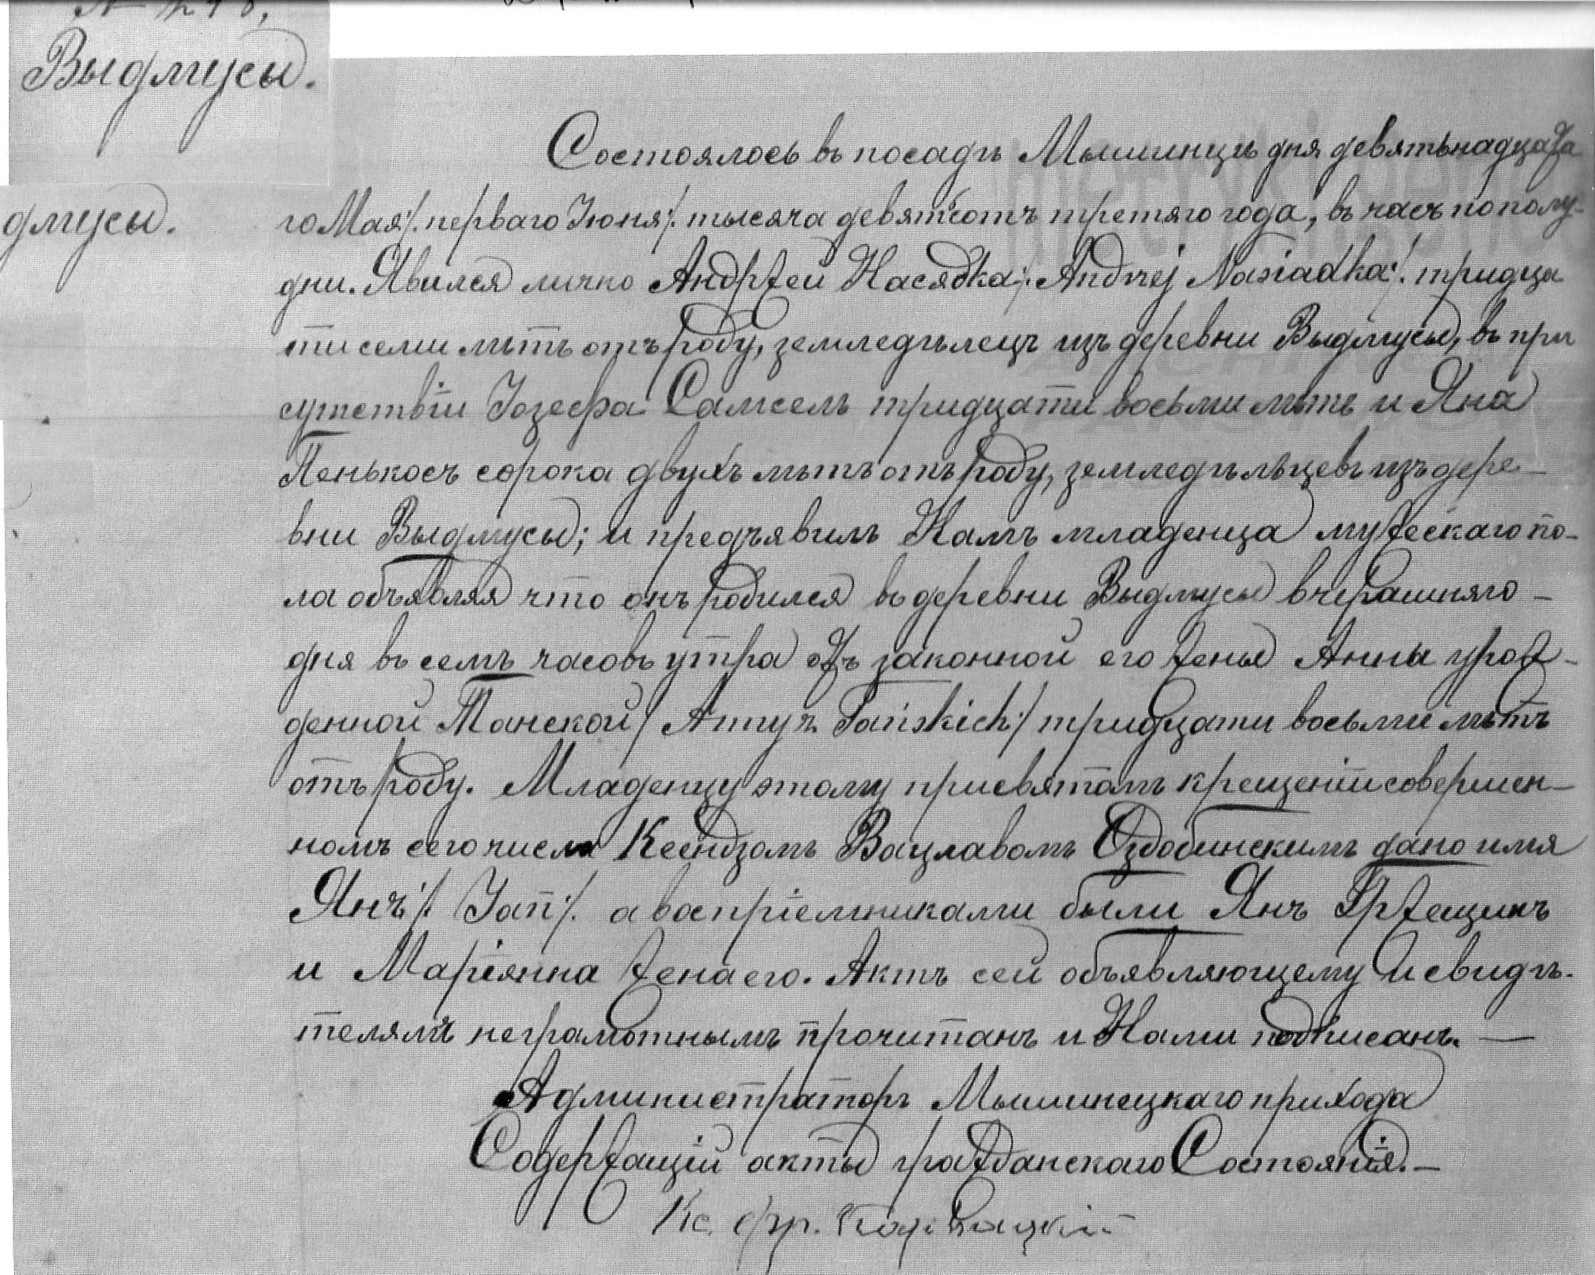 Выдмусы.
Состоялось въ посадѣ Мышинцѣ дня девятьнадцата
дмусы.
го Мая /: перваго Іюня /: тысяча девятьсотъ третяго года, въ часъ пополу-
дни. Явился лично Андржей Насядка /: Andrzej Nasiadka :/. тридца
ти семи лѣтъ отъ роду, земледѣлецъ изъ деревни Выдмусы, въ при
сутствіи Іозефа Самсель тридцати восьми лѣтъ и Яна
Пенькосъ сорока двухъ лѣтъ отъ роду, земледѣльцевъ изъ дере-
вни Выдмусы; и предъявилъ Намъ младенца мужескаго по-
ла объявляя что онъ родился въ деревни Выдмусы вчерашняго -
дня въ семь часовъ утра отъ законной его жены Анны урож-
денной Танской / Anny z Tańskich :/ тридцати восьми лѣтъ
отъ роду. Младенцу этому при святомъ крещеніи совершен-
номъ сего числа Ксендзомъ Вацлавомъ Оздобинскимъ дано имя
Янъ /: Jan :/. а воспріемниками были Янъ Гржещикъ
и Маріянна жена его. Актъ сей объявляющему и свидѣ-
телямъ неграмотнымъ прочитанъ и Нами подписанъ. —
Администраторъ Мышинецкаго прихода
Содержащій акты гражданскаго Состоянія. —
Кс. Фр.